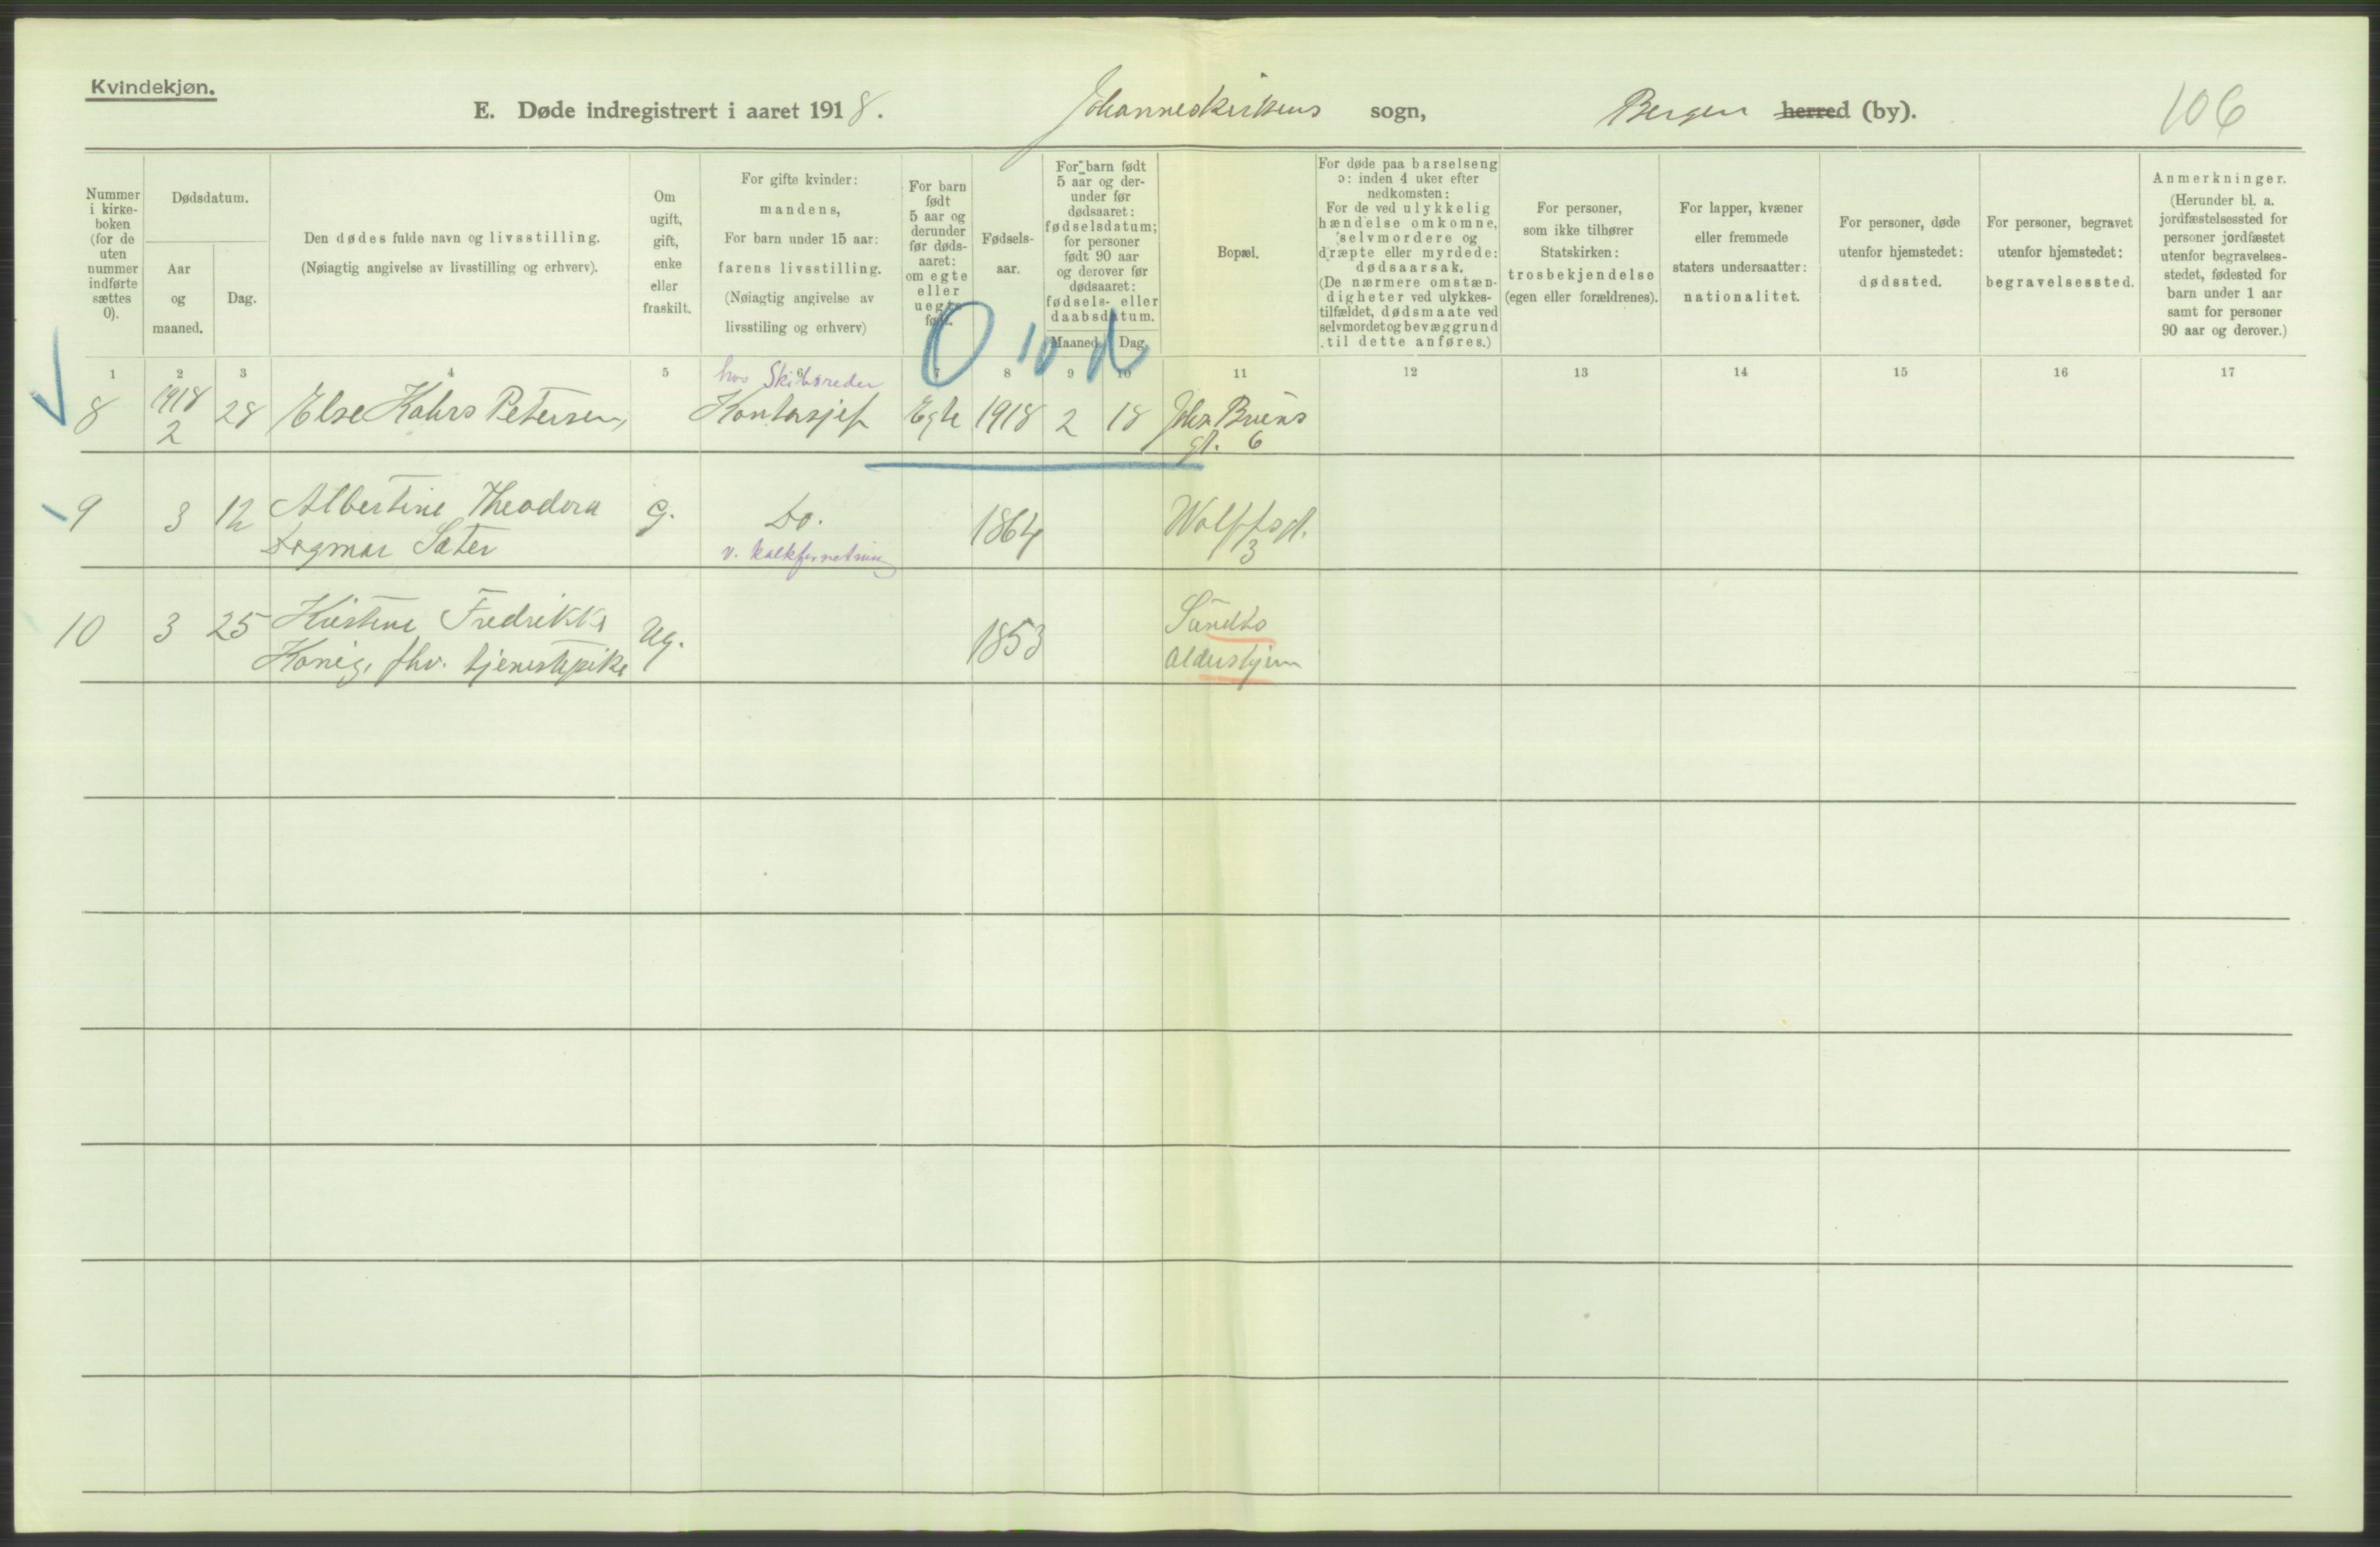 Kvindekjøn.
E. Døde indregistrert i aaret 1918. Johanneskirkens sogn, Bergen herred (by). 106
Nummer
i kirke-
boken
(for de
uten
nummer
indførte
sættes
0).
Dødsdatum.
Aar
og
maaned.
Dag.
Den dødes fulde navn og livsstilling.
(Nøiagtig angivelse av livsstilling og erhverv).
Om
ugift,
gift,
enke
eller
fraskilt.
For gifte kvinder:
mandens,
For barn under 15 aar:
farens livsstilling.
(Nøiagtig angivelse av
livsstiling og erhverv)
For barn
født
5 aar og
derunder
før døds-
aaret:
om egte
eller
uegte
født.
Fødsels-
aar.
For barn født
5 aar og der-
under før
dødsaaret:
fødselsdatum;
for personer
født 90 aar
og derover før
dødsaaret:
fødsels- eller
daabsdatum.
Maaned. Dag.
Bopæl.
For døde paa barselseng
ɔ: inden 4 uker efter
nedkomsten:
For de ved ulykkelig
hændelse omkomne,
selvmordere og
dræpte eller myrdede:
dødsaarsak.
(De nærmere omstæn-
digheter ved ulykkes-
tilfældet, dødsmaate ved
selvmordet og bevæggrund
til dette anføres.)
For personer,
som ikke tilhører
Statskirken:
trosbekjendelse
(egen eller forældrenes).
For lapper, kvæner
eller fremmede
staters undersaatter:
nationalitet.
For personer, døde
utenfor hjemstedet:
dødssted.
For personer, begravet
utenfor hjemstedet:
begravelsessted.
Anmerkninger.
(Herunder bl. a.
jordfæstelsessted for
personer jordfæstet
utenfor begravelses-
stedet, fødested for
barn under 1 aar
samt for personer
90 aar og derover.)
0 10 d
1 2 3 4 5 6 7 8 9 10 11 12 13 14 15 16 17
hos Skibsreder
8 1918 2 28 Else Kahrs Petersen, Kontorsjef Egte 1918 2 18 John Bruns
gt. 6
9 3 12 Albertine Theodora G. Do. 1864 Wolffsgt.
Dagmar Sæter v. kalkforretning 3
10 3 25 Kristine Fredrikke Ug. 1853 Sundts
Konig, fhv. tjenestepike Aldershjem